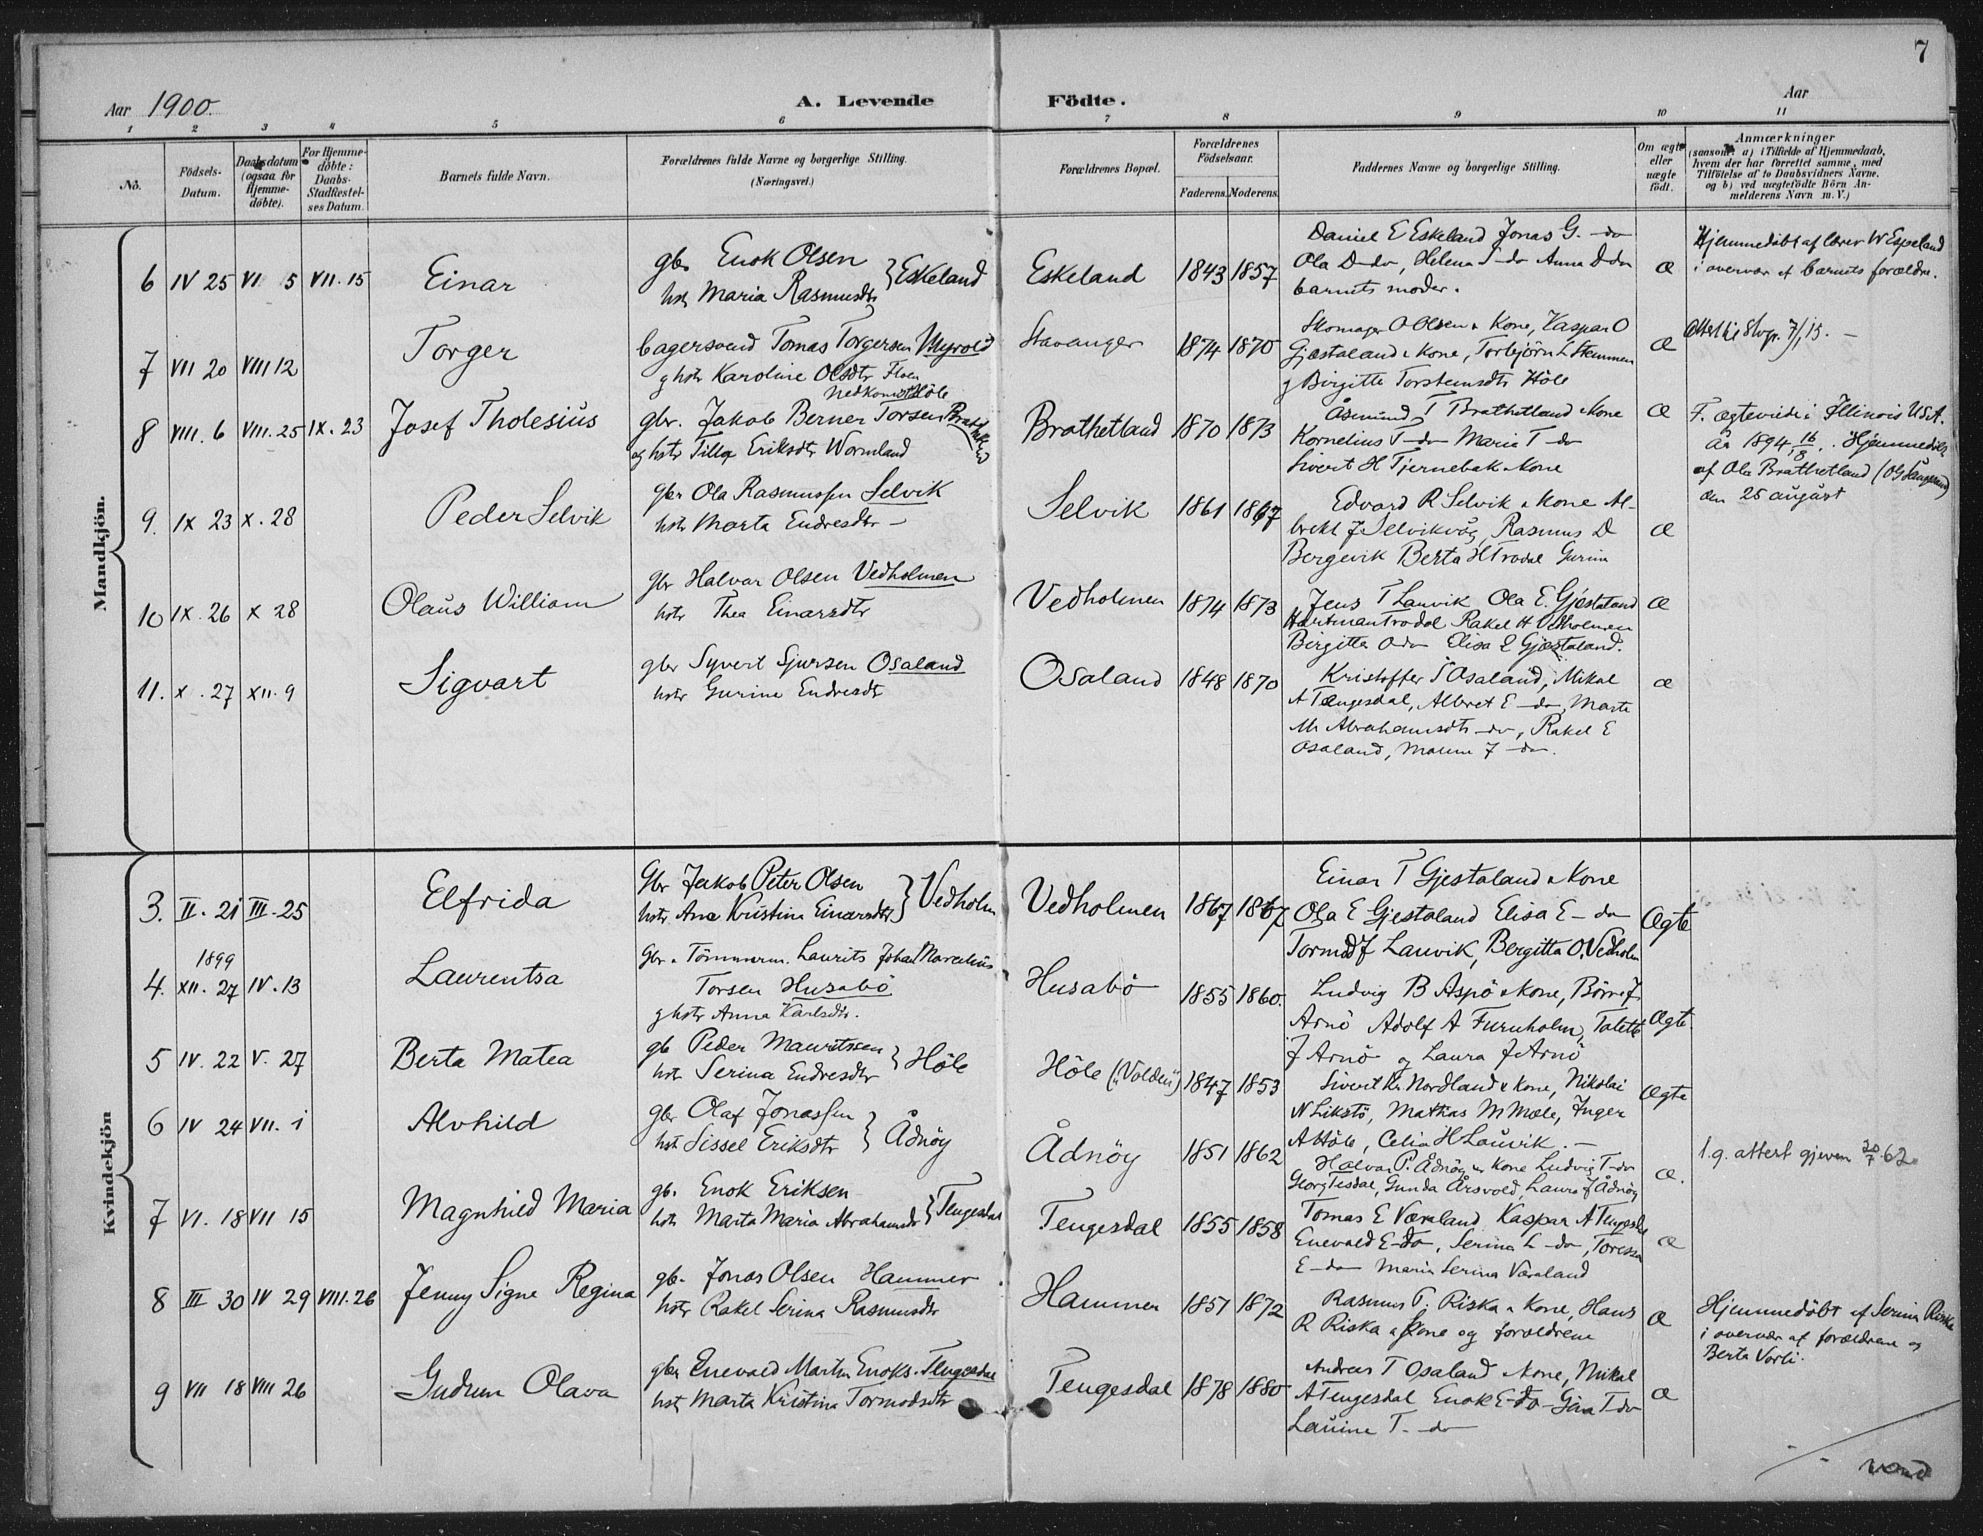 7
Aar 1900.
A. Levende Födte.
Aar
1 2 3 4 5 6 7 8 9 10 11
No.
Födsels-Datum.
Daabsdatum (ogsaa for Hjemme-döbte).
For Hjemme-döbte: Daabs-Stadfæstel-ses Datum.
Barnets fulde Navn.
Forældrenes fulde Navne og borgerlige Stilling.
(Næringsvei.)
Forældrenes Bopæl.
Forældrenes Födselsaar.
Faderens. Moderens.
Faddernes Navne og borgerlige Stilling.
Om ægte eller uægte födt.
Anmærkninger
(saasom: a) i Tilfælde af Hjemmedaab,
hvem der har forrettet samme, med
Tilföielse af to Daabsvidners Navne,
og b) ved uægtefödte Börn An-
melderens Navn m. V.)
Mandkjön.
6 IV 25 VI 5 VII. 15 Einar
gbr Enok Olsen
hstr Maria Rasmusdtr } Eskeland
Eskeland 1843 1857
Daniel E Eskeland Jonas G. -do
Ola D-do, Helena T-do Anna D-do
barnets moder.
æ
Hjemmedöbt af lærer W Espeland
i overvær af barnets forældre.
7 VII 20 VIII 12 Torger
bagersvend Tomas Torgersen Myrold
g hstr Karoline Olsdtr
Stavanger 1874 1870
Skomager O Olsen & Kone, Kaspar O
Gjestaland & Kone, Torbjörn L Stemmen
g Birgitte Torsteinsdtr Höle
æ
Attest til Stvgr. 7/1 15. -
8 VIII. 6 VIII. 25 IX. 23 Josef Tholesius
gbr. Jakob Berner Torsen
og hstr Tilla Eriksdtr Wormland
Brathetland 1870 1873
Åsmund T Brathetland & Kone
Kornelius T-do Maria T-do
Sivert H Tjernebak & Kone
æ
F. ægteviede i Illinois USA.
år 1894 16/8. Hjemmedöbt
af Ola Brathetland
den 25 august
9. IX 23 X. 28 Peder Selvik
gbr Ola Rasmussen Selvik
hstr Marta Endresdtr -
Selvik 1861 1867
Edvard R Selvik & Kone Al-
brekt J Selvikvåg, Rasmus D
Bergevik Berta H Trodal Gurine
æ
10 IX. 26 X 28 Olaus William
gbr Halvar Olsen Vedholmen
hstr Thea Einarsdtr
Vedholmen 1874 1873
Jens T Lauvik Ola E. Gjestaland
Hartman Trodal Rakel H Vedholmen
Birgitta O-do Elisa E Gjestaland.
æ
11. X. 27 XII. 9 Sigvart
gbr Syvert Sjursen Osaland
hstr Gurine Endresdtr
Osaland 1848 1870
Kristoffer S Osaland, Mikal
A Tengesdal, Albret E-do, Marta
M Abrahamsdtr-do, Rakel E
Osaland, J -do.
æ
Kvindekjön
3. II. 21 III. 25 Elfrida
Gbr Jakob Peter Olsen
hstr. Ana Kristina Einarsdtr } Vedholm
Vedholmen 1867 1867
Einar T Gjestaland & Kone
Ola E Gjestaland Elisa E-do
Tormod J Lauvik, Bergitta O. Vedholm
Ægte
4. 1899 XII. 27 IV. 13 Laurentsa
Gbr. Tömmerm. Laurits Johan Marcelius
Torsen Husabö
g hstr Anna Karlsdtr.
Husabö 1855 1860.
Ludvig B Aspö & Kone, Börre J
Arnö Adolf A Furuholm, Talette
J Arnö og Laura J Arnö
Ægte
5 IV. 22 V. 27 Berta Matea
gb Peder Mauritssen
hstr Serina Endresdtr } Höle
Höle ("Volden") 1847 1853
Sivert Kr Nordland & Kone, Nikolai
N Likstö, Mathias M Mæle, Inger
A Höle, Celia H Lauvik. -
Ægte
6 IV 24 VII. 1 Alvhild
gbr Olaf Jonassen
hstr Sissel Eriksdtr } Ådnöy
Ådnöy 1851 1862
Halvar P. Ådnöy & Kone Ludvig T-do
Georg Tesdal, Gunda Årsvold, Laura J Ådnöy
æ.
1.g. attest gjeven 20/7 62
7 VI. 18 VII 15 Magnhild Maria
gb. Enok Eriksen
hstr Marta Maria Abrahamsdtr } Tengesdal
Tengesdal 1855 1858
Tomas E Væraland Kaspar A Tengesdal
Enevald E-do, Serina L -do, Toressa
E-do Maria Serina Væraland
æ
8 III 30 IV 29 VIII. 26 Jenny Signe Regina
gb. Jonas Olsen Hammer
hstr Rakel Serina Rasmusdtr
Hammer 1851 1872
Rasmus T. Riska & Kone, Hans
R Riska & Kone og forældrene
æ
Hjemmedöbt af Serina Riska
i overvær af forældrene og
Berta Vorli.
9 VII 18 VIII 26 Gudrun Olava
gbr Enevald Martin Enoks. Tengesdal
hstr Marta Kristina Tormodsdtr
Tengesdal 1878 1880
Andreas T Osaland & Kone, Mikal
A Tengesdal Enok E-do Gina T-do
Lauine T. -do
æ
vend